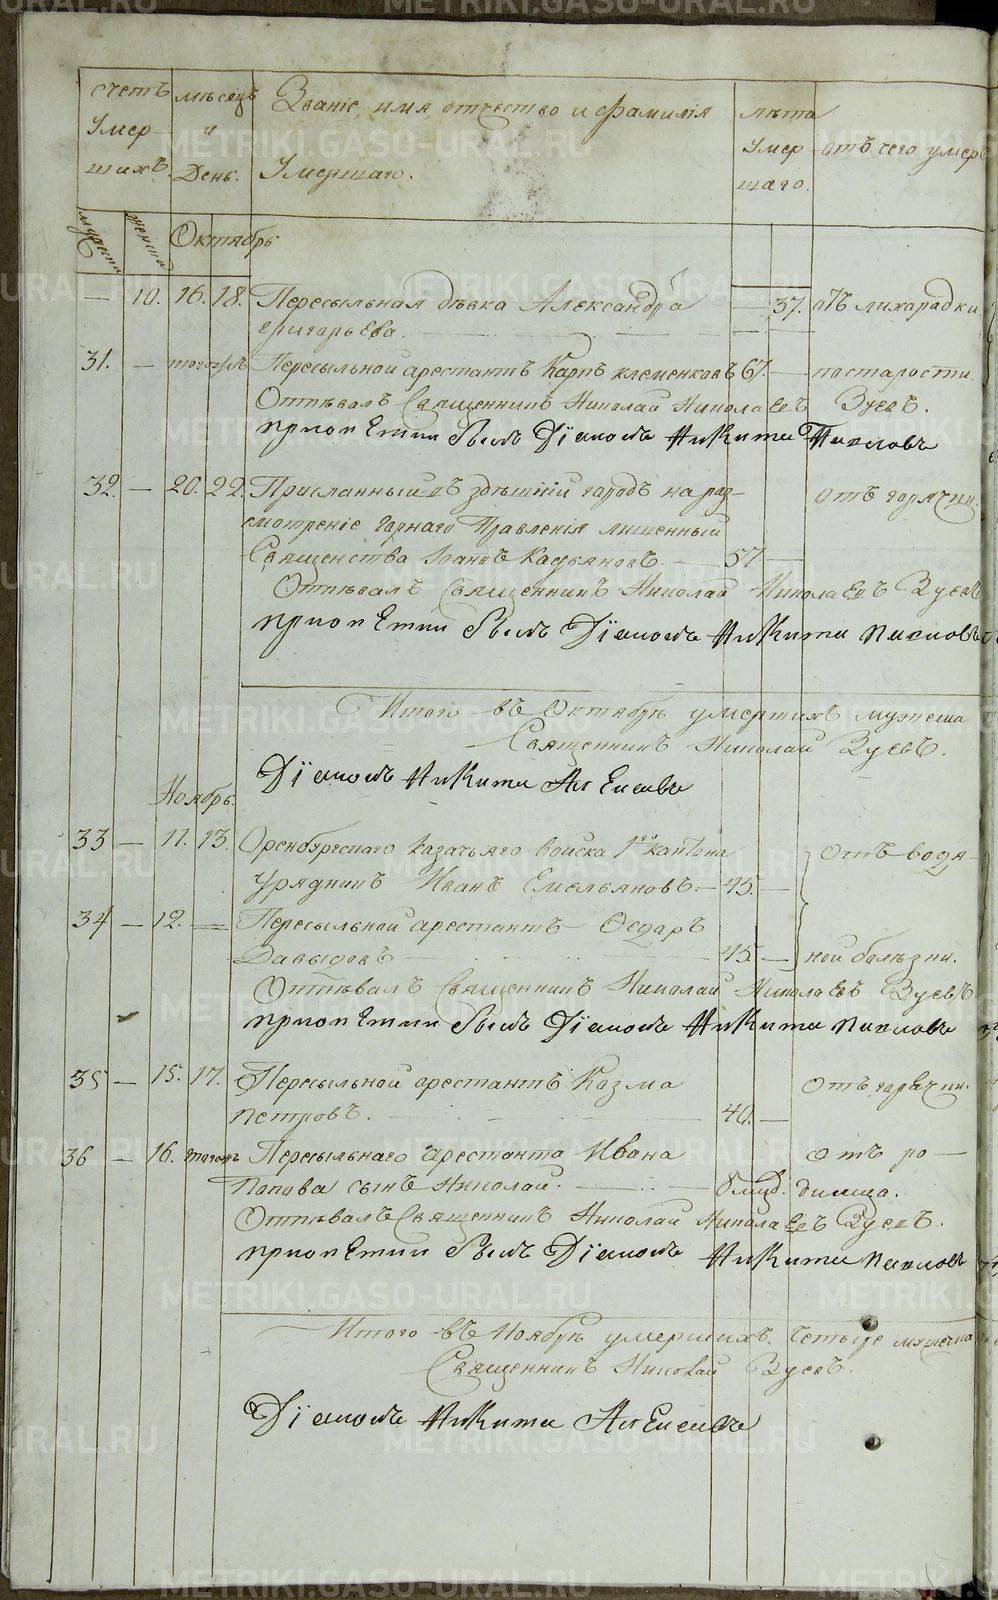 счетъ умершихъ
мѣсяцъ и день.
Званіе, имя, отчество и фамилія умершаго.
лѣта умершаго.
отъ чего умеръ
мужеска
женска
Октябрь
— 10. 16. 18. Пересыльная дѣвка Александра — 37. отъ лихарадки
григорьева.
31. — тогожъ Пересыльной арестантъ Карпъ клеменковъ 67. — по старости.
Отпѣвалъ Священникъ Николай Николаевъ Зуевъ.
при опѣтіи былъ Дїаконъ Никита
32. — 20. 22. Присланный въ здѣшній городъ на раз- отъ горячки.
смотреніе горнаго Правленія лишенный
Священства Іоаннъ — 57. —
Отпѣвалъ Священникъ Николай Николаевъ Зуевъ
при опѣтіи былъ Дїаконъ Никита
Итого въ Октябрѣ умершихъ мужеска
Священникъ Николай Зуевъ.
Дїаконъ Никита Алексеевъ
Ноябрь.
33 — 11. 13. Оренбургскаго казачьяго войска 1го кантона отъ водя-
Урядникъ Иванъ Емельяновъ. — 45. —
34 — 12. — Пересыльной арестантъ Ѳедаръ
Давыдовъ — 45. — ной болѣзни.
Отпѣвалъ Священникъ Николай Николаевъ Зуевъ
при опѣтіи былъ Дїаконъ Никита
35 — 15. 17. Пересыльной арестантъ Козма отъ горячки.
петровъ. — 40. —
36 — 16. тогожъ Пересыльнаго арестанта Ивана отъ ро-
Попова сынъ Николай. — димца.
Отпѣвалъ Священникъ Николай Николаевъ Зуевъ.
при опѣтіи былъ Дїаконъ Никита
Итого въ Ноябрѣ умершихъ четыре мужеска
Священникъ Николай Зуевъ.
Дїаконъ Никита Алексеевъ
METRIKI.GASO-URAL.RU